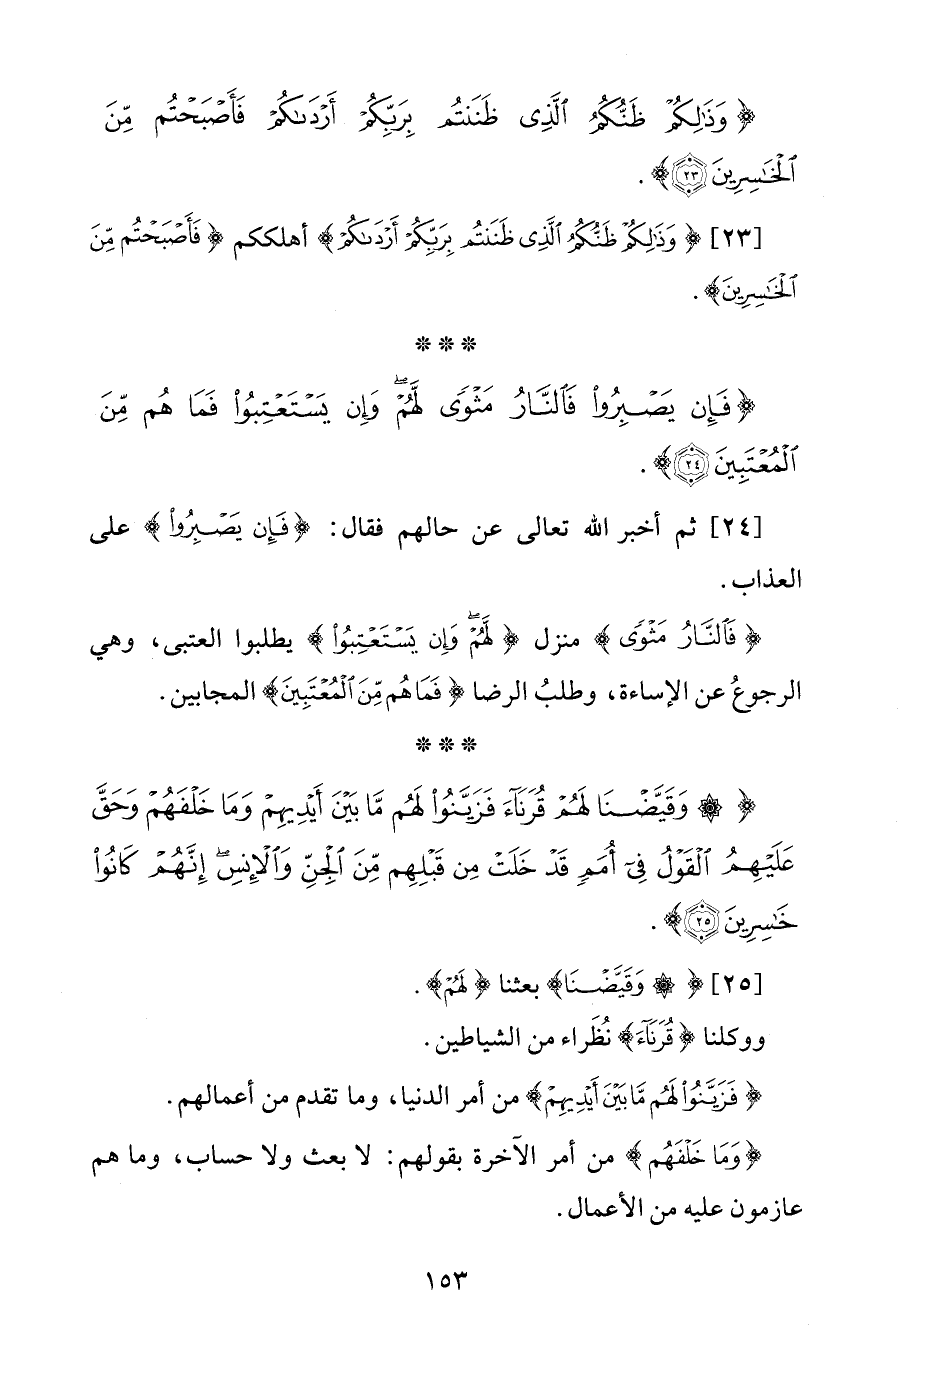 ﴿وَذَٰلِكُمْ ظَنُّكُمُ ٱلَّذِى ظَنَنتُم بِرَبِّكُمْ أَرْدَىٰكُمْ فَأَصْبَحْتُم مِّنَ
ٱلْخَٰسِرِينَ ﴿٢٣﴾﴾ .
[٢٣] ﴿وَذَٰلِكُمْ ظَنُّكُمُ ٱلَّذِى ظَنَنتُم بِرَبِّكُمْ أَرْدَىٰكُمْ﴾ أهلككم ﴿فَأَصْبَحْتُم مِّنَ
ٱلْخَٰسِرِينَ﴾ .
* * *
﴿فَإِن يَصْبِرُوا۟ فَٱلنَّارُ مَثْوًى لَّهُمْ ۖ وَإِن يَسْتَعْتِبُوا۟ فَمَا هُم مِّنَ
ٱلْمُعْتَبِينَ ﴿٢٤﴾﴾ .
[٢٤] ثم أخبر الله تعالى عن حالهم فقال: ﴿فَإِن يَصْبِرُوا۟﴾ على
العذاب.
﴿فَٱلنَّارُ مَثْوًى﴾ منزل ﴿لَّهُمْ ۖ وَإِن يَسْتَعْتِبُوا۟﴾ يطلبوا العتبى، وهي
الرجوعُ عن الإساءة، وطلبُ الرضا ﴿فَمَا هُم مِّنَ ٱلْمُعْتَبِينَ﴾ المجابين.
* * *
﴿۞ وَقَيَّضْنَا لَهُمْ قُرَنَآءَ فَزَيَّنُوا۟ لَهُم مَّا بَيْنَ أَيْدِيهِمْ وَمَا خَلْفَهُمْ وَحَقَّ
عَلَيْهِمُ ٱلْقَوْلُ فِىٓ أُمَمٍ قَدْ خَلَتْ مِن قَبْلِهِم مِّنَ ٱلْجِنِّ وَٱلْإِنسِ ۖ إِنَّهُمْ كَانُوا۟
خَٰسِرِينَ ﴿٢٥﴾﴾ .
[٢٥] ﴿۞ وَقَيَّضْنَا﴾ بعثنا ﴿لَهُمْ﴾ .
ووكلنا ﴿قُرَنَآءَ﴾ نُظَراء من الشياطين.
﴿فَزَيَّنُوا۟ لَهُم مَّا بَيْنَ أَيْدِيهِمْ﴾ من أمر الدنيا، وما تقدم من أعمالهم.
﴿وَمَا خَلْفَهُم﴾ من أمر الآخرة بقولهم: لا بعث ولا حساب، وما هم
عازمون عليه من الأعمال.
١٥٣